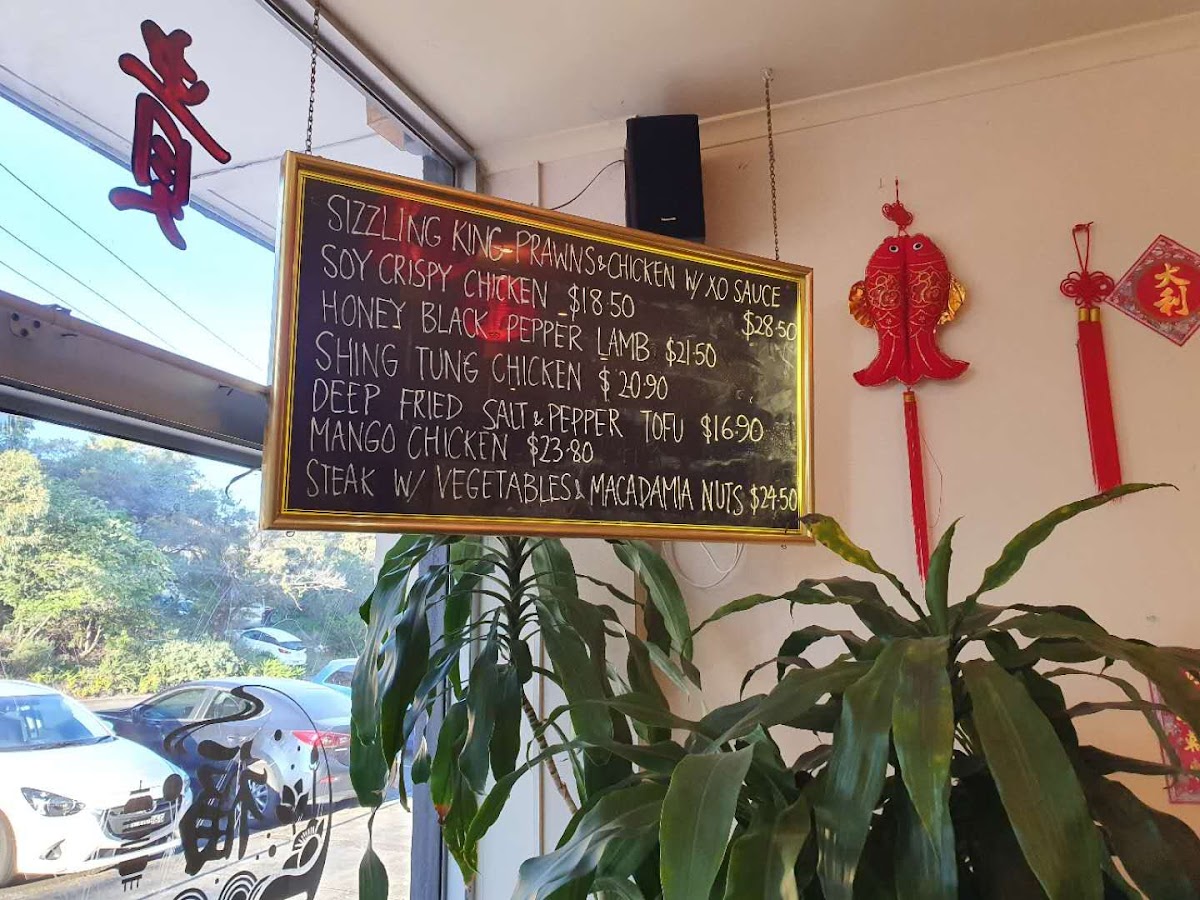 SIZZLING KING PRAWNS & CHICKEN W/ XO SAUCE
$28.50
SOY CRISPY CHICKEN $18.50
HONEY BLACK PEPPER LAMB $21.50
SHING TUNG CHICKEN $20.90
DEEP FRIED SALT & PEPPER TOFU $16.90
MANGO CHICKEN $23.80
STEAK W/ VEGETABLES & MACADAMIA NUTS $24.50
大利